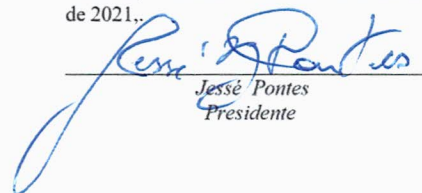 de 2021,.
Jessé Pontes
Jessé Pontes
Presidente